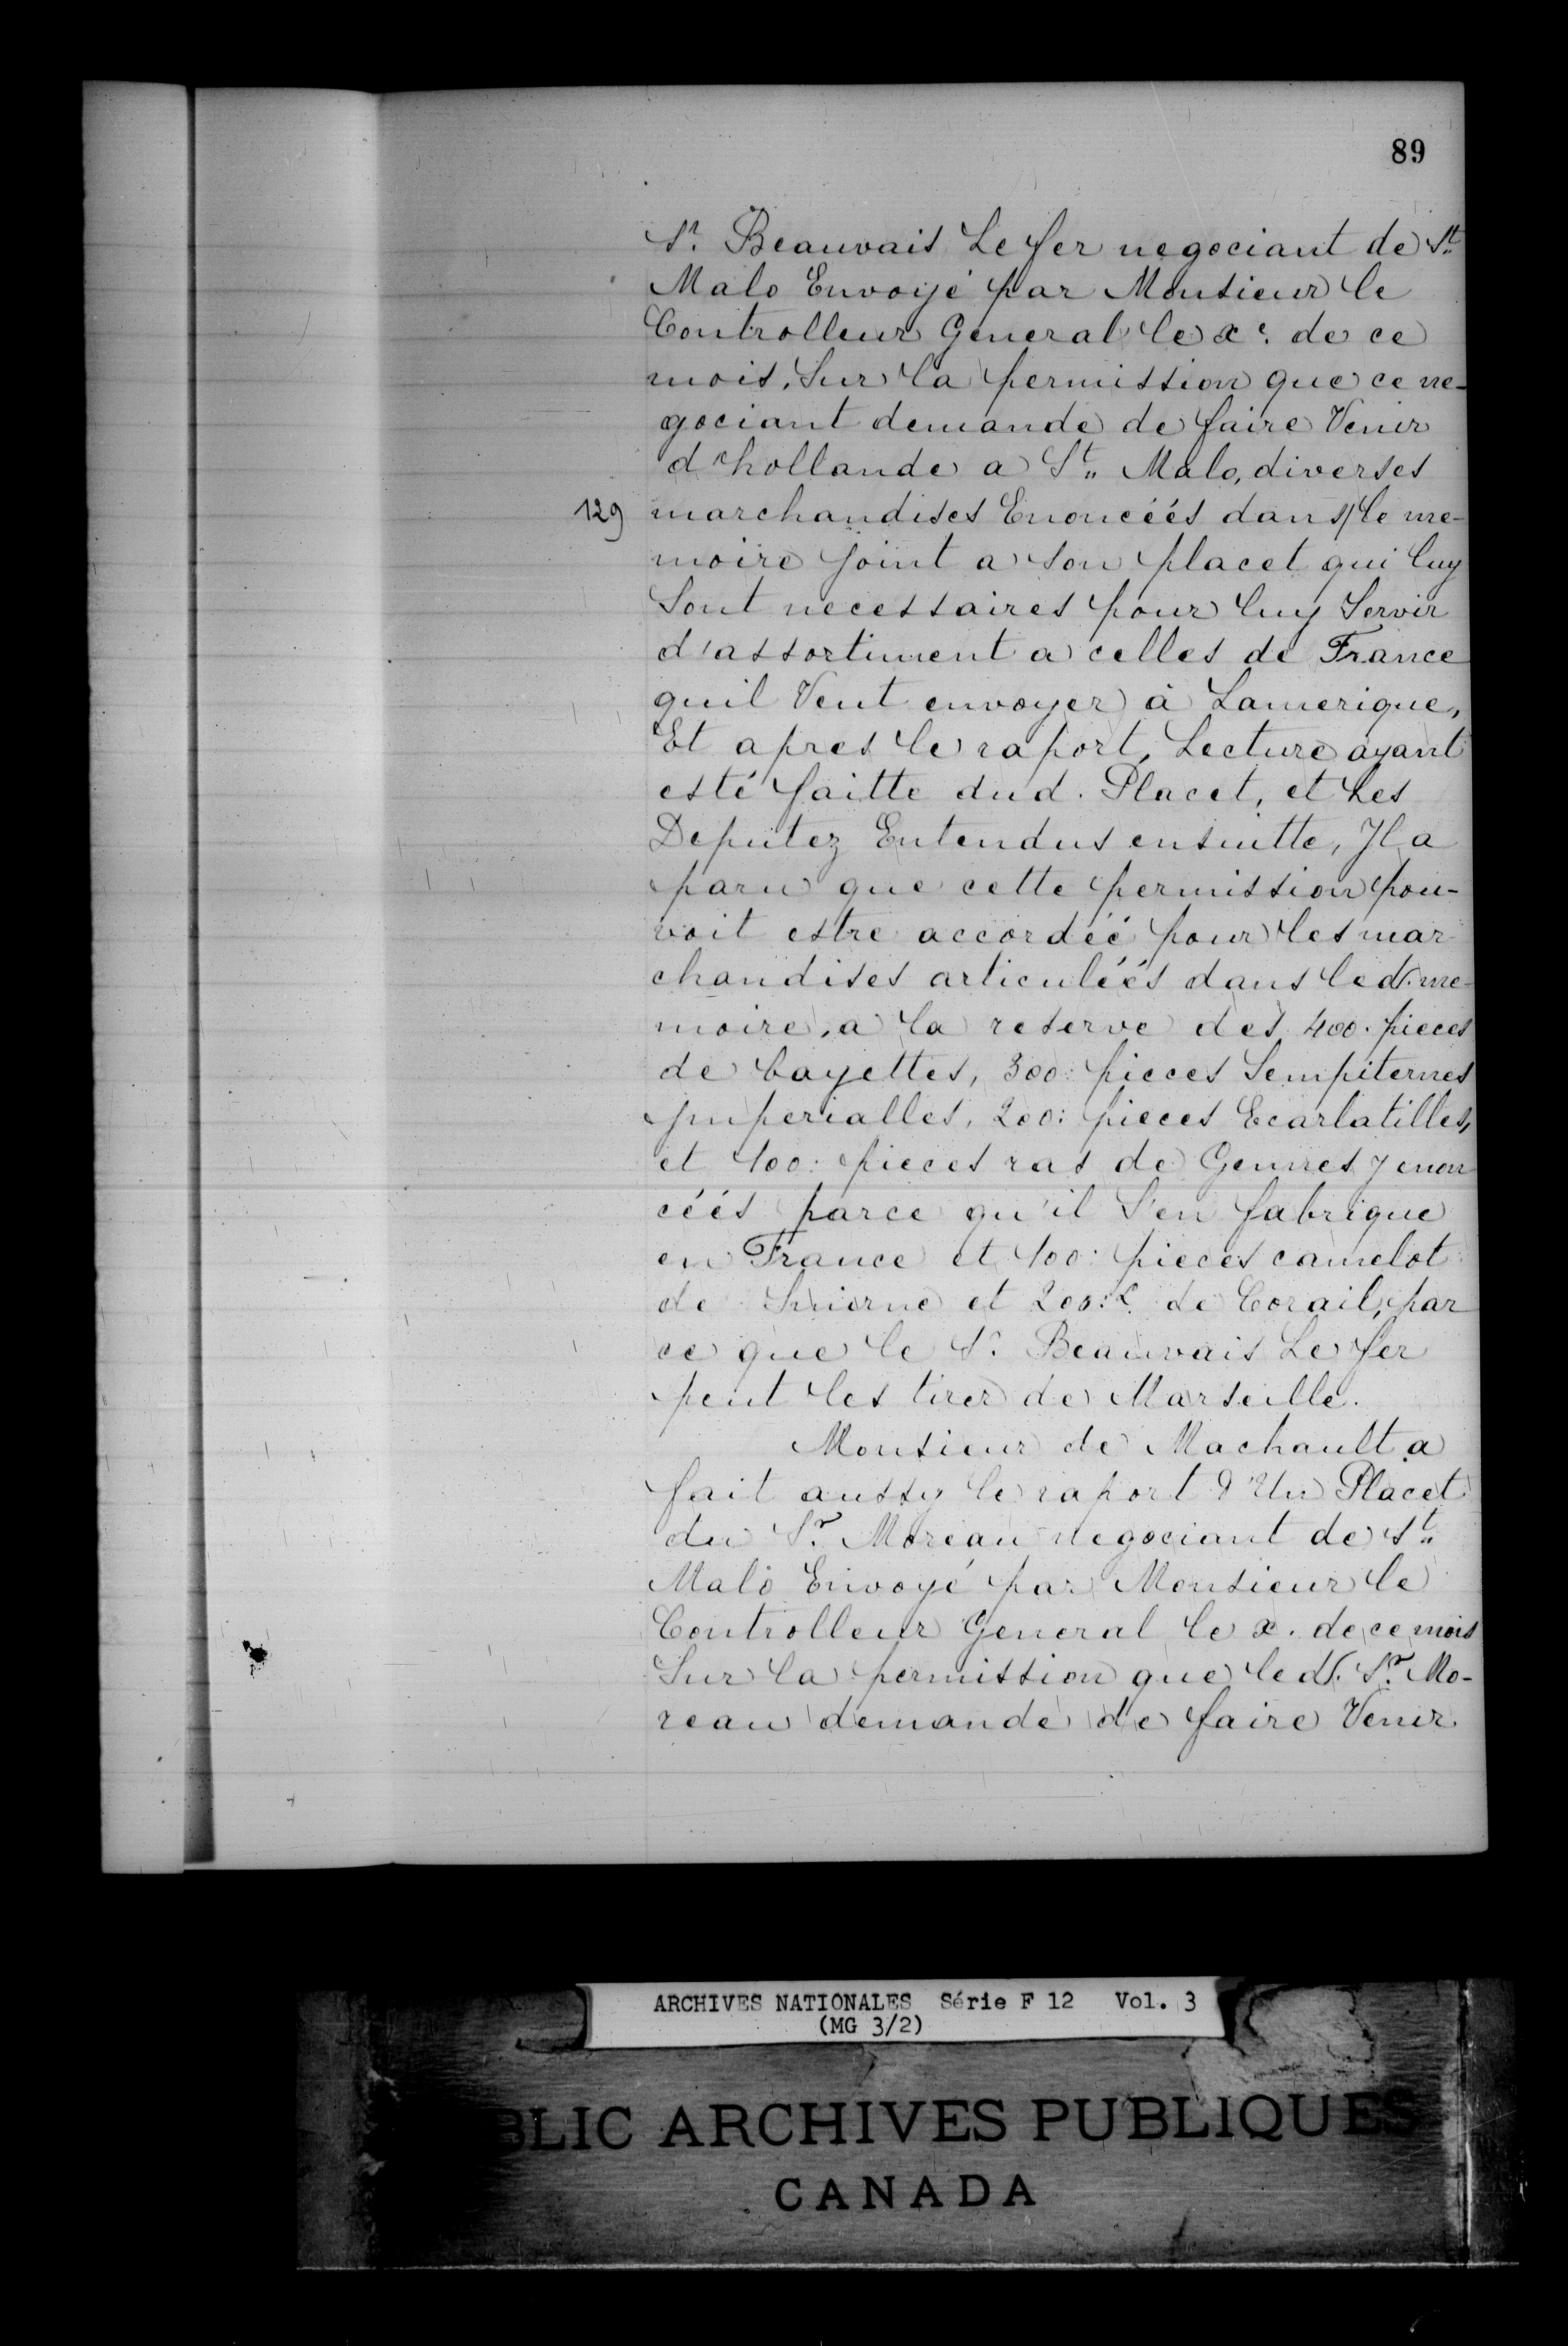 89
Sr. Beauvais Le fer negociant de St
Malo Envoyé par Monsieur le
Controlleur General le xe. de ce
mois. Sur la permission que ce ne-
gociant demande de faire Venir
d'hollande a St„ Malo, diverses
129 marchandises Enoncéés dans/ le me-
moire joint a son placet qui luy
Sont necessaires pour luy Servir
d'assortiment a celles de France
quil Veut envoyer à Lamerique,
Et apres le raport, Lecture ayant
esté faitte dud. Placet, et Les
Deputez Entendus ensuitte, Jl a
paru que cette permission pou-
voit estre accordéé pour les mar
chandises articuléés dans led. me-
moire, a la reserve des 400. pieces
de bayettes, 300: pieces Sempiternes
Jmperialles, 200: pieces Ecarlatilles,
et 100: pieces ras de Gennes y enon
céés parce qu'il S'en fabrique
en France et 100: pieces camelot
de Smirne et 200: de Corail, par
ce que le Sr. Beauvais Le fer
peut les tirer de Marseille.
Monsieur de Machault a
fait aussy le raport d'Un Placet
du Sr. Moreau negociant de St„
Malo Envoyé par Monsieur le
Controlleur General le x. de ce mois
Sur la permission que led. Sr. Mo-
reau demande de faire Venir
ARCHIVES NATIONALES Série F 12 Vol. 3
(MG 3/2)
BLIC ARCHIVES PUBLIQUES
CANADA